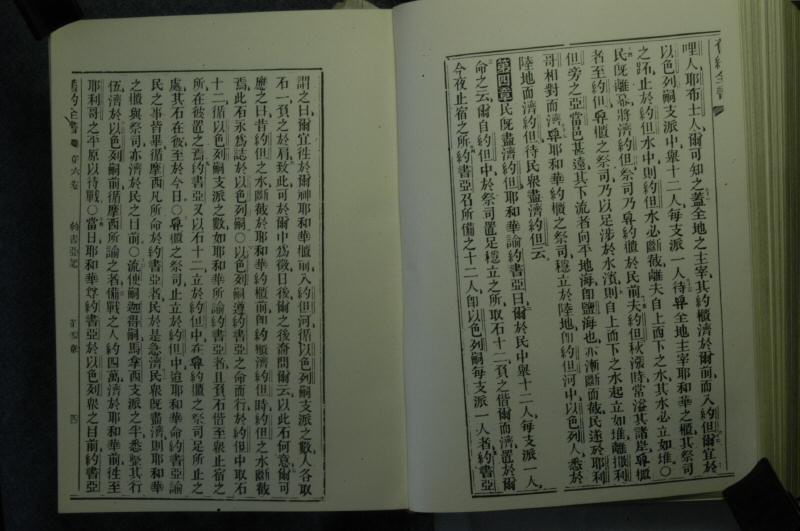 舊約全書
哩人耶布士人爾可知之蓋全地之主宰其約櫃濟於爾前而入約但爾宜於
以色列嗣支派中舉十二人每支派一人待舁全地主宰耶和華之櫃其祭司
之跖止於約但水中則約但水必斷截離夫自上而下之水其水必立如堆○
民旣離幕將濟約但祭司乃舁約櫃於民前夫約但秋漲時常溢其諸岸舁櫃
者至約但舁櫃之祭司乃以足涉於水濱則自上而下之水起立如堆離撒利
但旁之亞當邑甚遠其下流者向平地海卽鹽海也亦漸斷而截民遂於耶利
哥相對而濟舁耶和華約櫃之祭司穩立於陸地卽約但河中以色列人悉於
陸地而濟約但待民衆盡濟約但云
第四章民旣盡濟約但耶和華諭約書亞曰爾於民中舉十二人每支派一人
命之云爾自約但中於祭司置足穩立之所取石十二負之偕爾而濟置於爾
今夜止宿之所約書亞召所備之十二人卽以色列嗣每支派一人者約書亞
謂之曰爾宜往於爾神耶和華櫃前入約但河循以色列嗣支派之數人各取
石一負之於肩致此可於爾中爲徵日後爾之後裔問爾云以此石何意爾可
應之曰昔約但之水斷截於耶和華約櫃前卽約櫃濟約但時約但之水斷截
焉此石永爲誌於以色列嗣○以色列嗣遵約書亞之命而行於約但中取石
十二循以色列嗣支派之數如耶和華所諭約書亞者且負石偕至衆止宿之
所在彼置之焉約書亞又以石十二立於約但中在舁約櫃之祭司足所止之
處其石在彼至於今日○舁櫃之祭司止立於約但中迨耶和華命約書亞諭
民之事皆畢循摩西凡所命於約書亞者民於是急濟民衆旣盡濟則耶和華
之櫃與祭司亦濟於民之目前○流便嗣迦得嗣馬拿西支派之半悉整其行
伍濟於以色列嗣前循摩西所諭之者備戰之人約四萬濟於耶和華前往至
耶利哥之平原以待戰○當日耶和華尊約書亞於以色列衆之目前約書亞
舊約全書 第六卷 約書亞記 第四章 四